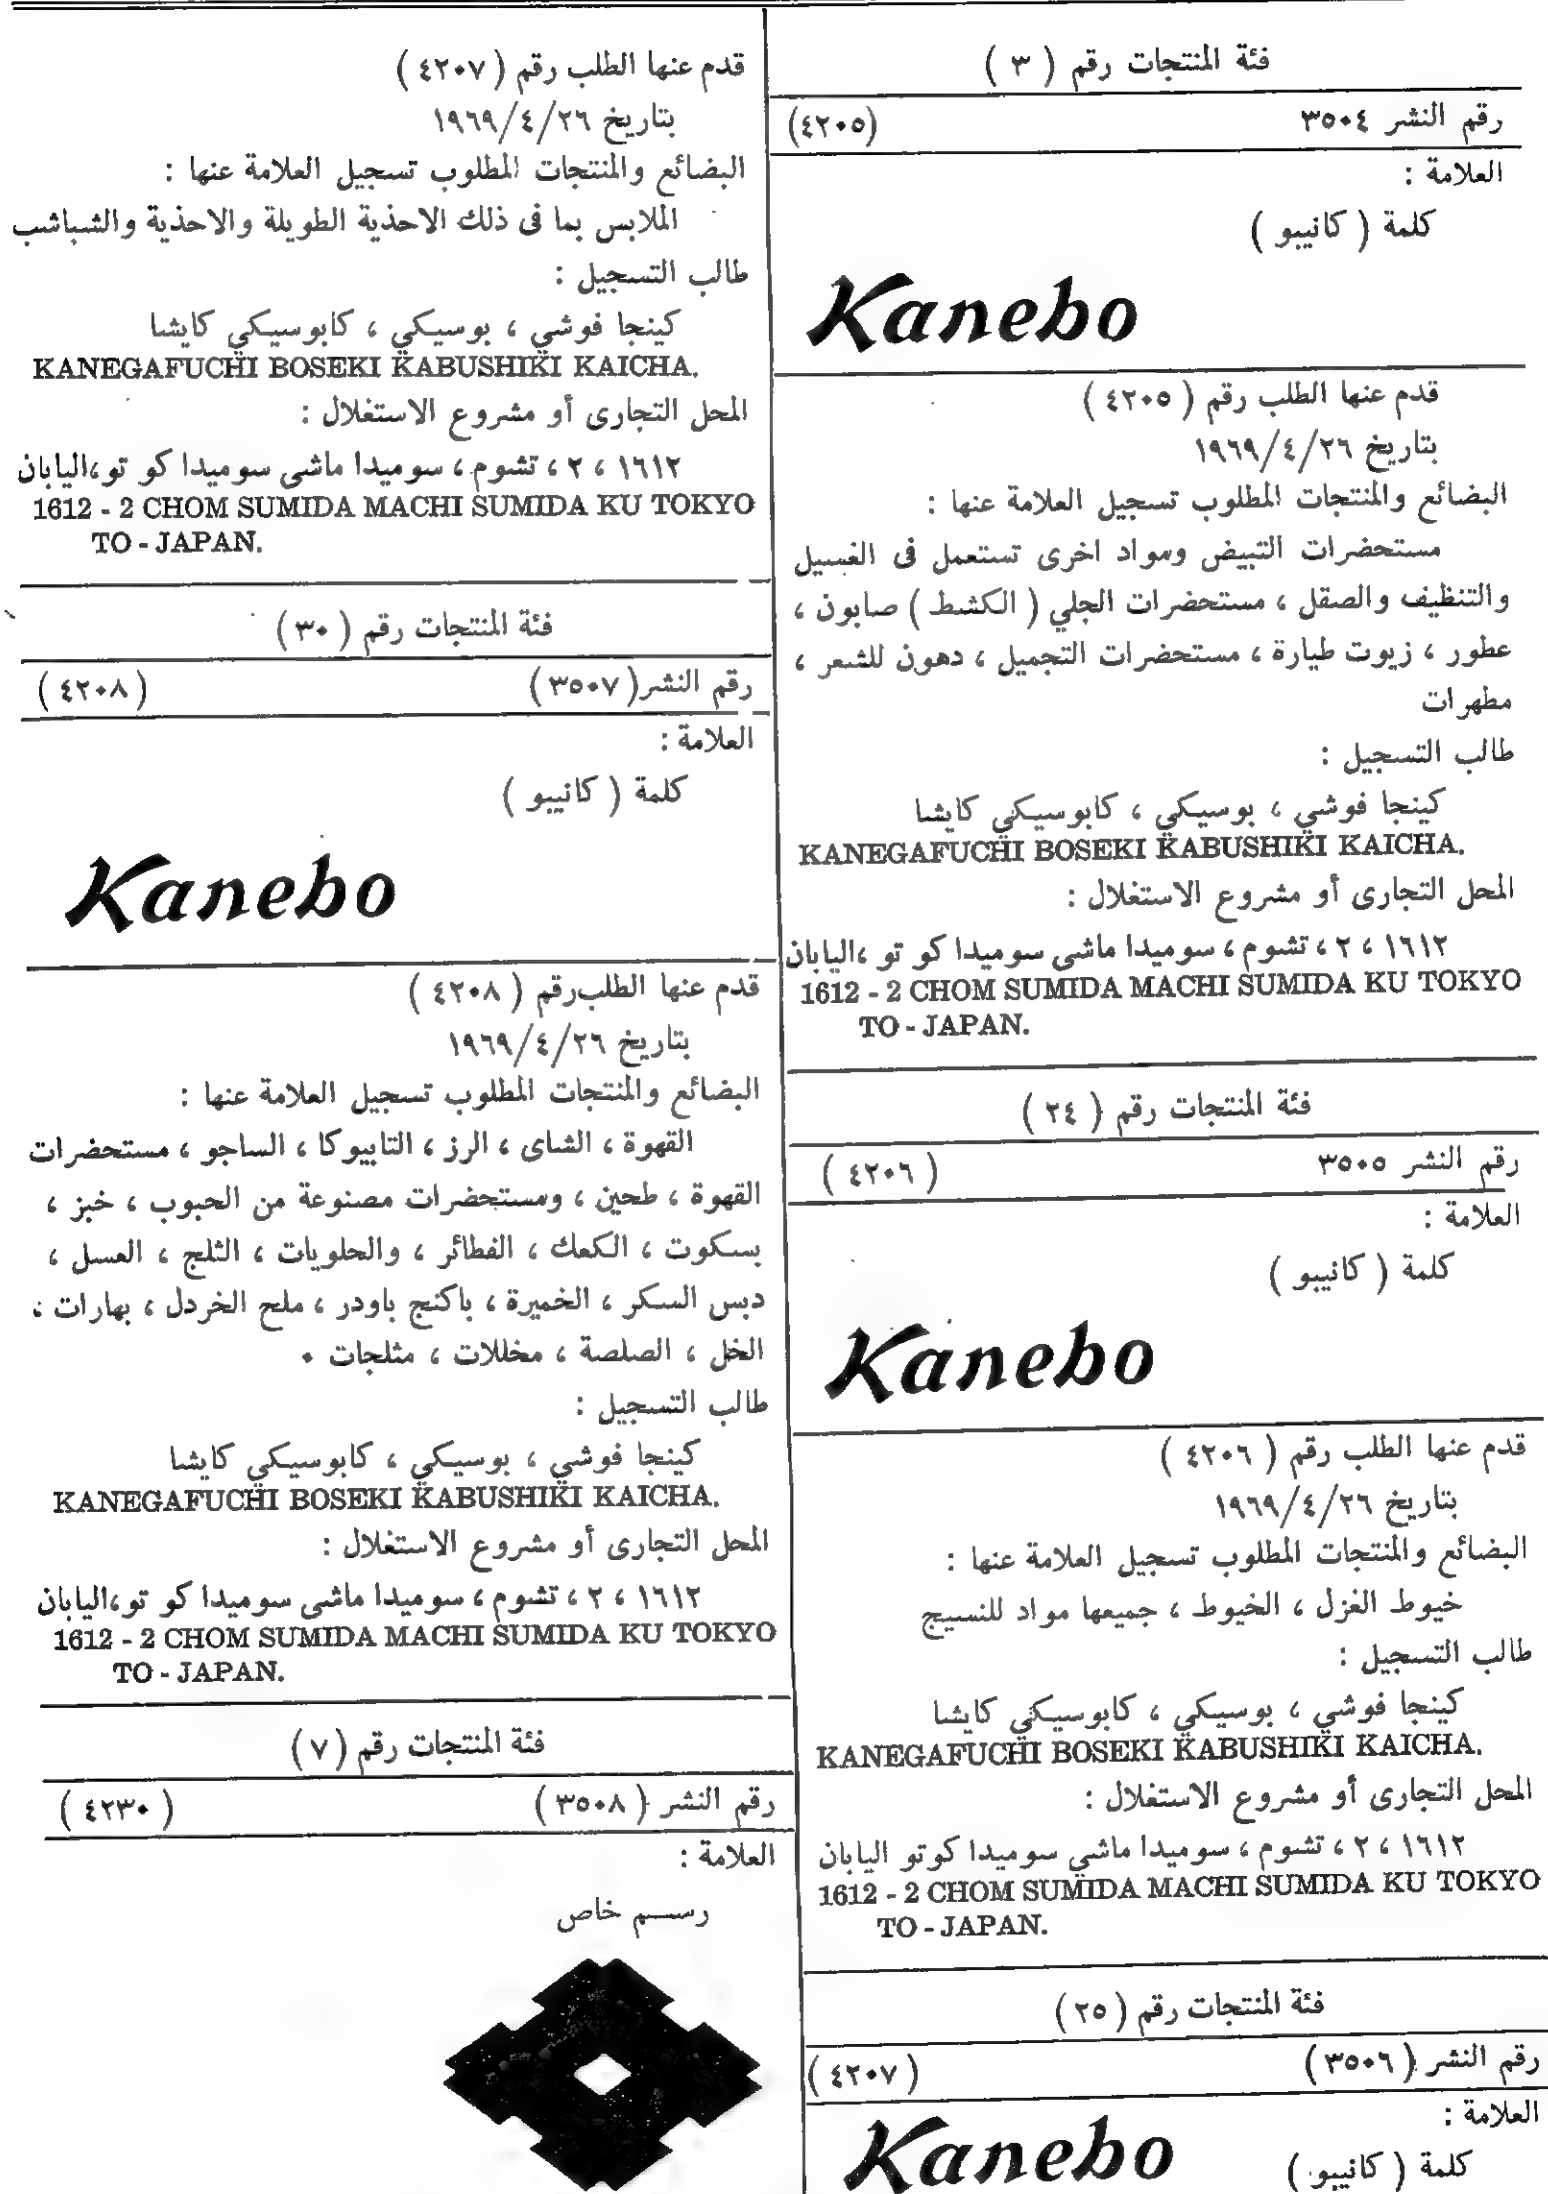 فئة المنتجات رقم ( ٣ )
رقم النشر ٣٥٠٤ (٤٢٠٥)
العلامة :
كلمة ( كانيبو )
Kanebo
قدم عنها الطلب رقم ( ٤٢٠٥ )
بتاريخ ١٩٦٩/٤/٢٦
البضائع والمنتجات المطلوب تسجيل العلامة عنها :
مستحضرات التبيض ومواد اخرى تستعمل فى الغسيل
والتنظيف والصقل ، مستحضرات الجلي ( الكشط ) صابون ،
عطور ، زيوت طيارة ، مستحضرات التجميل ، دهون للشعر ،
مطهرات
طالب التسجيل :
كينجا فوشي ، بوسيكي ، كابوسيكي كايشا
KANEGAFUCHI BOSEKI KABUSHIKI KAICHA.
المحل التجارى أو مشروع الاستغلال :
١٦١٢ ، ٢ ، تشوم ، سوميدا ماشى سوميدا كو تو ،اليابان
1612 - 2 CHOM SUMIDA MACHI SUMIDA KU TOKYO
TO - JAPAN.
فئة المنتجات رقم ( ٢٤ )
رقم النشر ٣٥٠٥ ( ٤٢٠٦ )
العلامة :
كلمة ( كانيبو )
Kanebo
قدم عنها الطلب رقم ( ٤٢٠٦ )
بتاريخ ١٩٦٩/٤/٢٦
البضائع والمنتجات المطلوب تسجيل العلامة عنها :
خيوط الغزل ، الخيوط ، جميعها مواد للنسيج
طالب التسجيل :
كينجا فوشي ، بوسيكي ، كابوسيكي كايشا
KANEGAFUCHI BOSEKI KABUSHIKI KAICHA.
المحل التجارى أو مشروع الاستغلال :
١٦١٢ ، ٢ ، تشوم ، سوميدا ماشي سوميدا كوتو اليابان
1612 - 2 CHOM SUMIDA MACHI SUMIDA KU TOKYO
TO - JAPAN.
فئة المنتجات رقم ( ٢٥ )
رقم النشر ( ٣٥٠٦ ) ( ٤٢٠٧ )
العلامة :
كلمة ( كانيبو )
Kanebo
قدم عنها الطلب رقم ( ٤٢٠٧ )
بتاريخ ١٩٦٩/٤/٢٦
البضائع والمنتجات المطلوب تسجيل العلامة عنها :
الملابس بما فى ذلك الاحذية الطويلة والاحذية والشباشب
طالب التسجيل :
كينجا فوشي ، بوسيكي ، كابوسيكي كايشا
KANEGAFUCHI BOSEKI KABUSHIKI KAICHA.
المحل التجارى أو مشروع الاستغلال :
١٦١٢ ، ٢ ، تشوم ، سوميدا ماشى سوميدا كو تو ،اليابان
1612 - 2 CHOM SUMIDA MACHI SUMIDA KU TOKYO
TO - JAPAN.
فئة المنتجات رقم ( ٣٠ )
رقم النشر ( ٣٥٠٧ ) ( ٤٢٠٨ )
العلامة :
كلمة ( كانيبو )
Kanebo
قدم عنها الطلب رقم ( ٤٢٠٨ )
بتاريخ ١٩٦٩/٤/٢٦
البضائع والمنتجات المطلوب تسجيل العلامة عنها :
القهوة ، الشاى ، الرز ، التابيوكا ، الساجو ، مستحضرات
القهوة ، طحين ، ومستحضرات مصنوعة من الحبوب ، خبز ،
بسكوت ، الكعك ، الفطائر ، والحلويات ، الثلج ، العسل ،
دبس السكر ، الخميرة ، باكنج باودر ، ملح الخردل ، بهارات ،
الخل ، الصلصة ، مخللات ، مثلجات ٠
طالب التسجيل :
كينجا فوشي ، بوسيكي ، كابوسيكي كايشا
KANEGAFUCHI BOSEKI KABUSHIKI KAICHA.
المحل التجارى أو مشروع الاستغلال :
١٦١٢ ، ٢ ، تشوم ، سوميدا ماشى سوميدا كو تو ،اليابان
1612 - 2 CHOM SUMIDA MACHI SUMIDA KU TOKYO
TO - JAPAN.
فئة المنتجات رقم ( ٧ )
رقم النشر ( ٣٥٠٨ ) ( ٤٢٣٠ )
العلامة :
رسم خاص